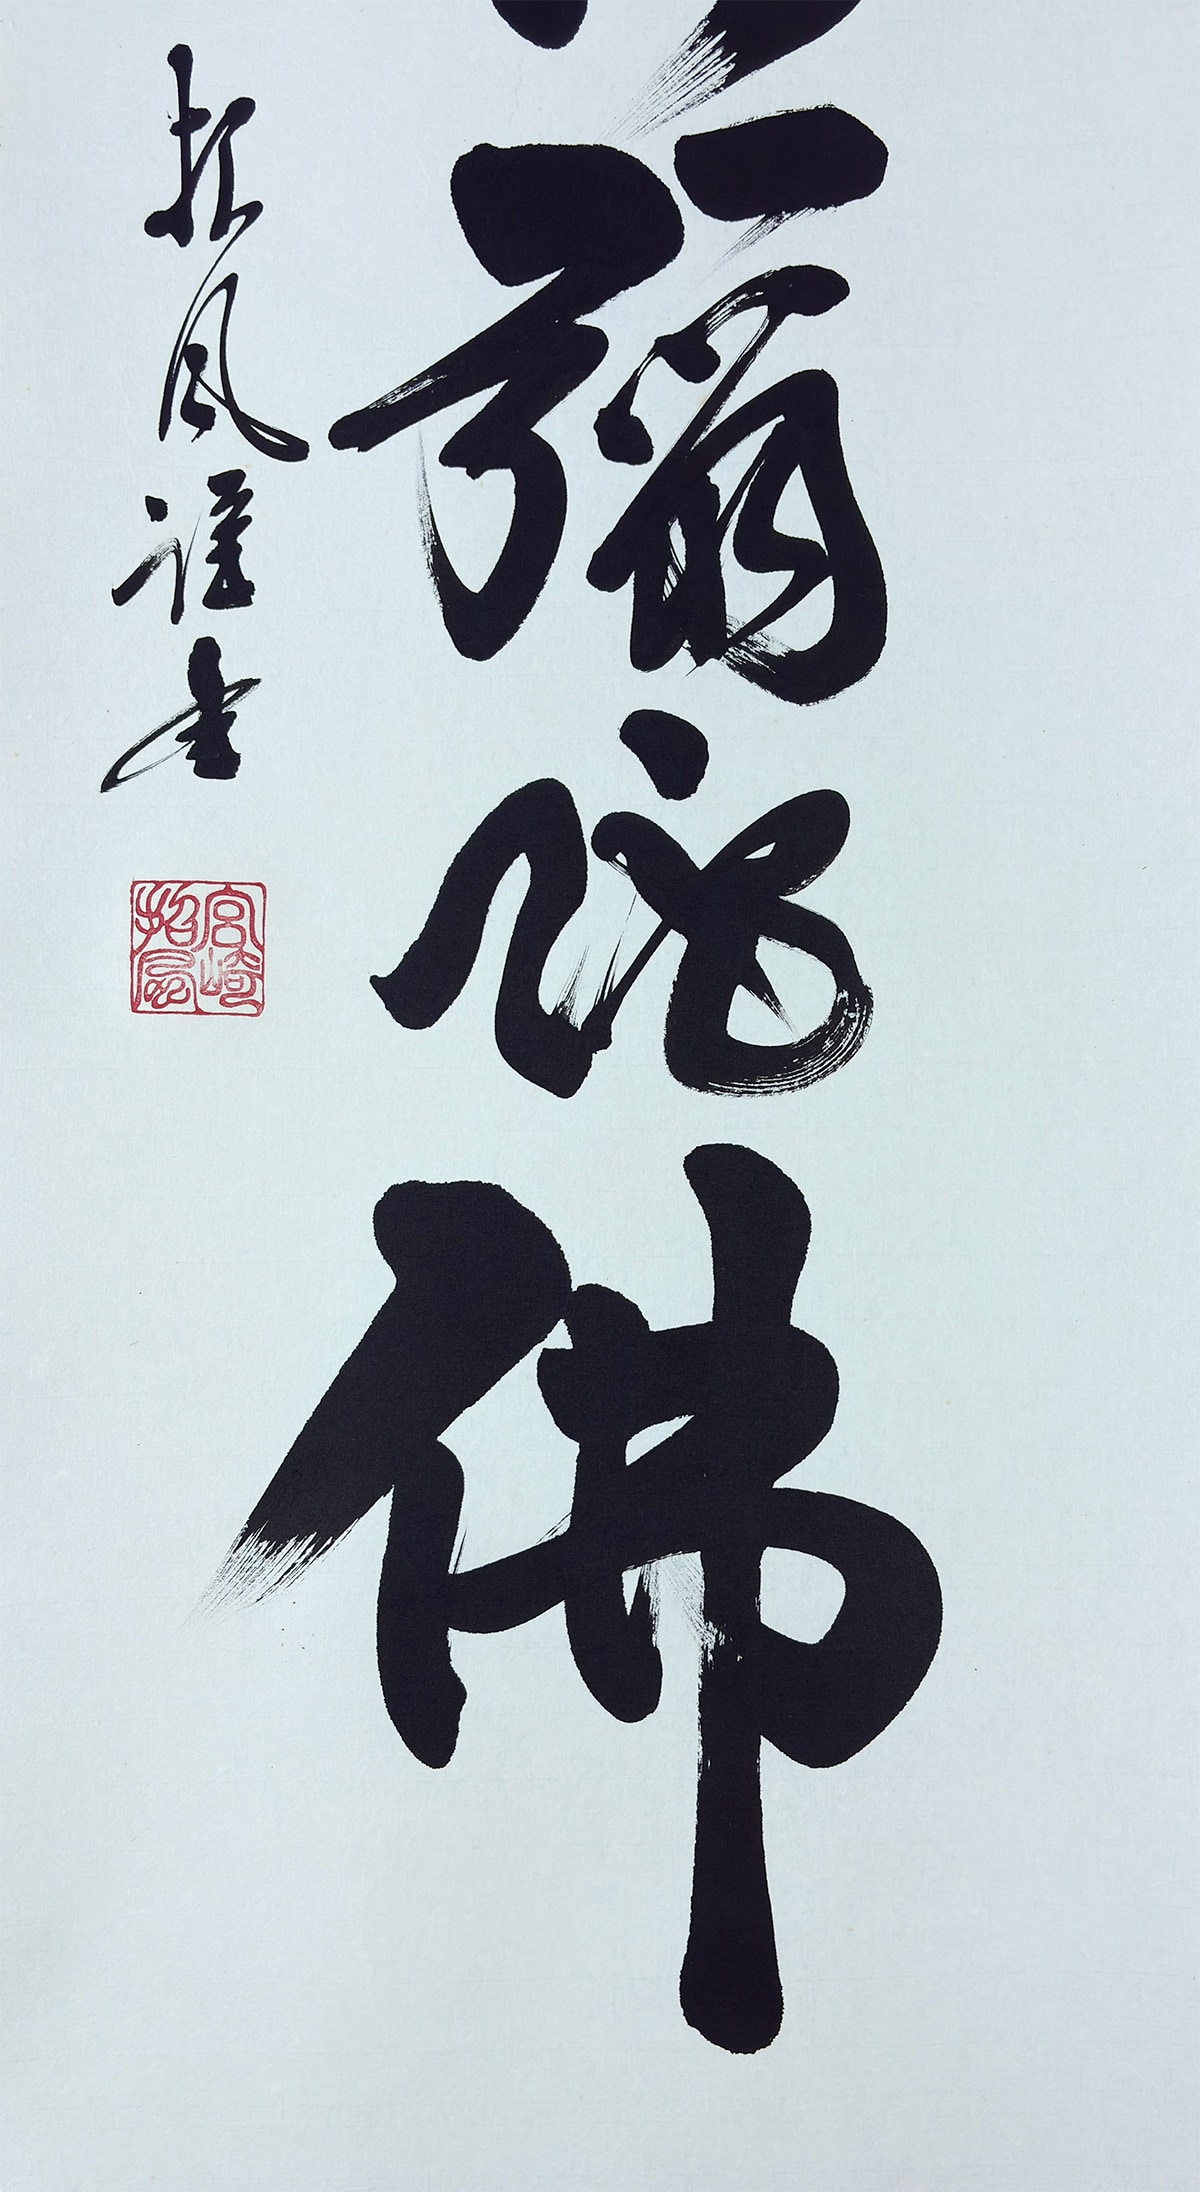 彌陀佛
招風謹書
宮崎招風